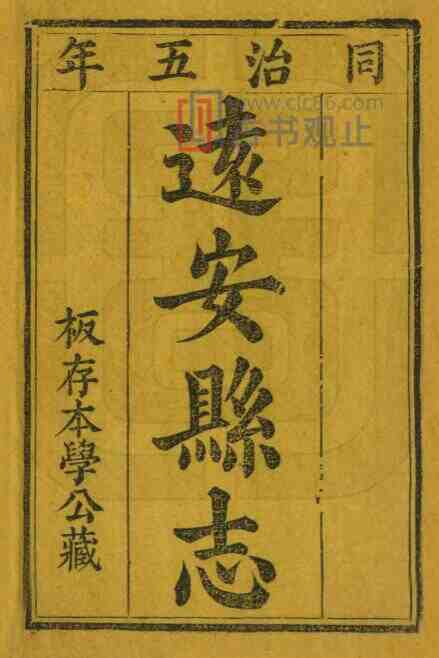 同治五年
遠安縣志
板存本學公藏
www.clc86.com
书观止